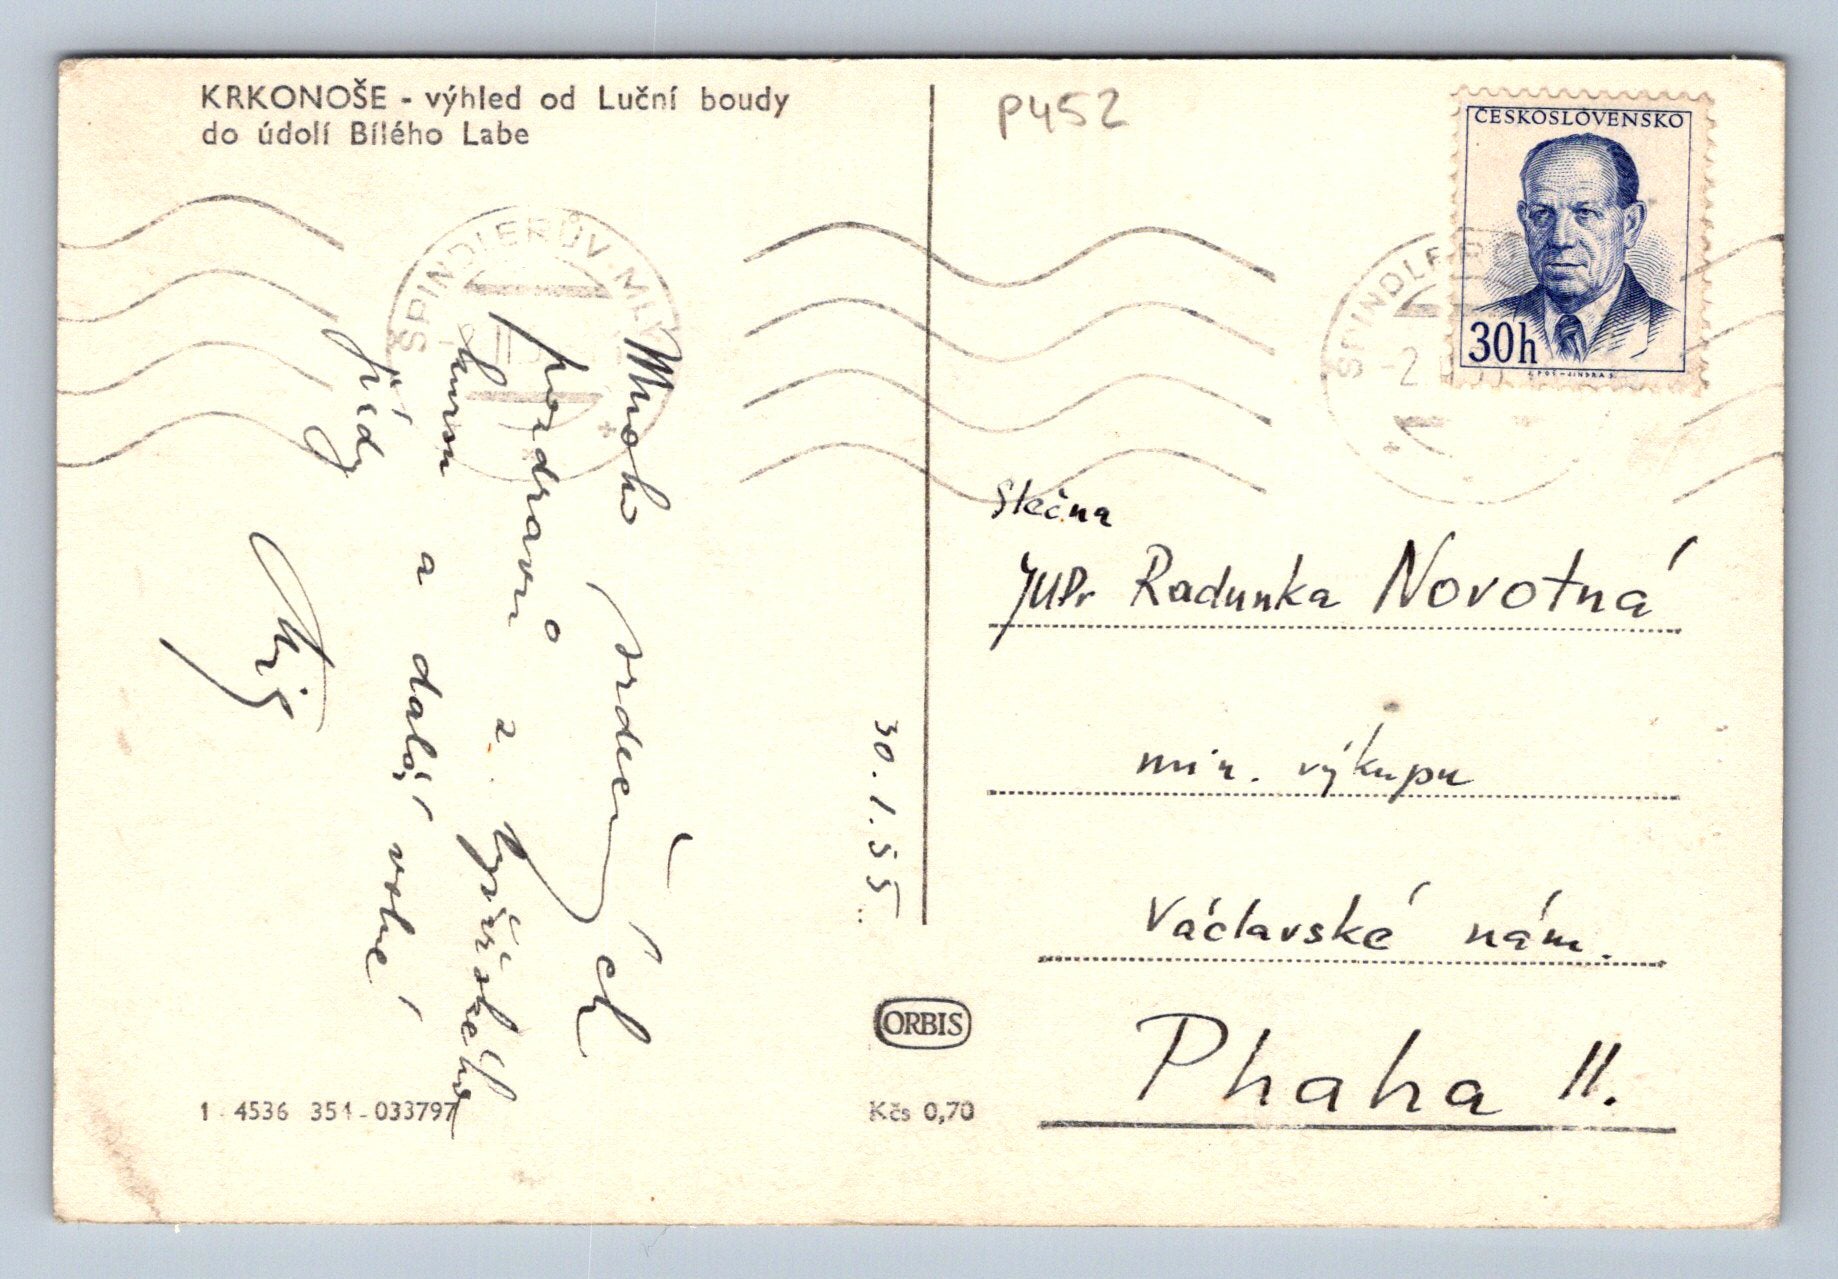 KRKONOŠE - výhled od Luční boudy
do údolí Bílého Labe
P452
ČESKOSLOVENSKO
30h
ŠPINDLERŮV MLÝN
Mnoho srdečných
pozdravů z lyžařského
a další volné
jízdy
30.1.55
Slečna
JUDr Radunka Novotná
min. výkupu
Václavské nám.
Praha II.
ORBIS
1 - 4536 351-033797
Kčs 0,70